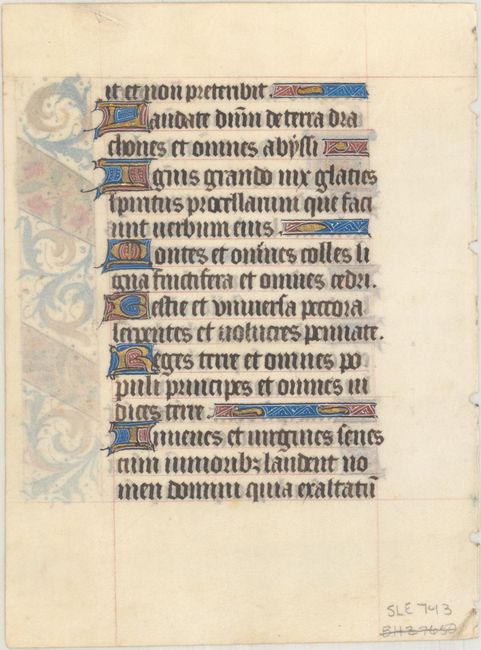 it et non preteribit.
Laudate dñm de terra dra
chones et omnes abyssi
Ignis grando nix glacies
spiritus procellarum que faci
unt uerbum eius.
Montes et omnes colles li
gna fructifera et omnes cedri.
Bestie et vniuersa peccora
serpentes et uolucres pennate.
Reges terre et omnes po
puli principes et omnes iu
dices terre.
Iuuenes et uirgines senes
cum iunioribꝫ laudent no
men domini quia exaltatũ
SLE 743